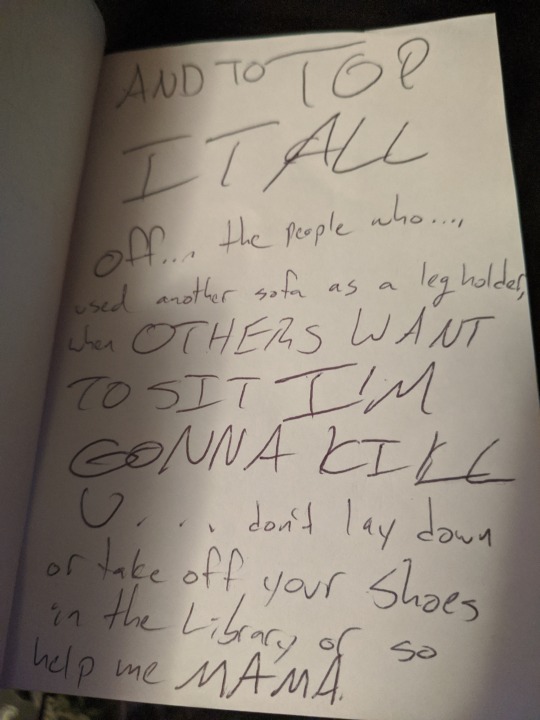 AND TO TOP
IT ALL
off... the people who....,
used another sofa as a leg holder,
when OTHERS WANT
TO SIT I'M
GONNA KILL
U... don't lay down
or take off your shoes
in the Library or so
help me MAMA.